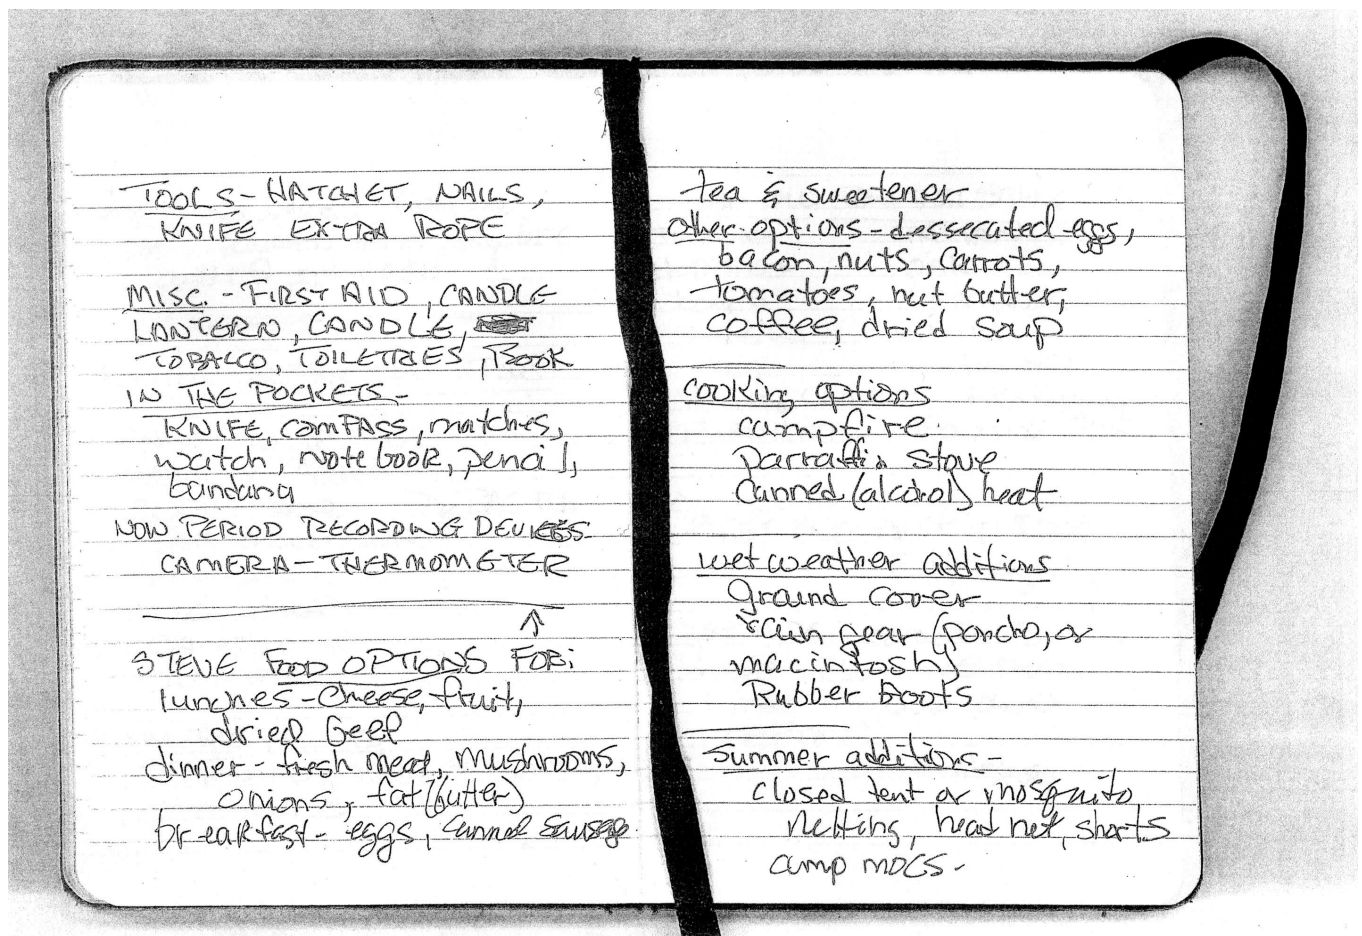 TOOLS - HATCHET, NAILS,
KNIFE EXTRA ROPE
MISC. - FIRST AID, CANDLE
LANTERN, CANDLE,
TOBACCO, TOILETRIES, BOOK
IN THE POCKETS -
KNIFE, COMPASS, matches,
watch, note book, pencil,
bandana
NOW PERIOD RECORDING DEVICES
CAMERA - THERMOMETER
STEVE FOOD OPTIONS FOR:
lunches - cheese, fruit,
dried beef
dinner - fresh meat, mushrooms,
onions, fat (butter)
breakfast - eggs, canned sausage
tea & sweetener
other options - dessecated eggs,
bacon, nuts, carrots,
tomatoes, nut butter,
coffee, dried soup
cooking options
campfire
parraffin stove
canned (alcohol) heat
wet weather additions
ground cover
rain gear (poncho, or
macintosh)
Rubber boots
summer additions -
closed tent or mosquito
netting, head net, shorts
camp mocs -